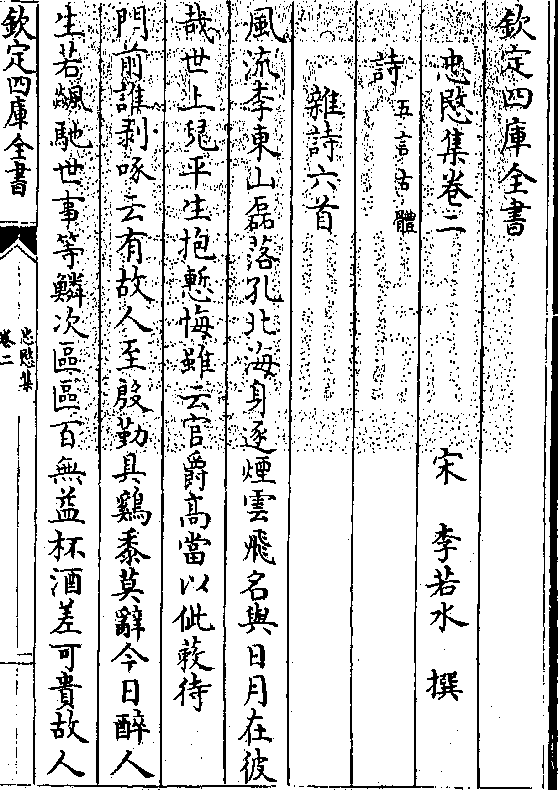 欽定四庫全書
忠愍集卷二
宋 李若水 撰
詩五言古體
雜詩六首
風流李東山磊落孔北海身逐煙雲飛名與日月在彼
哉世上兒平生抱慙悔雖云官爵高當以仳蔌待
門前誰剥啄云有故人至殷勤具鷄黍莫辭今日醉人
生若飈馳世事等鱗次區區百無益杯酒差可貴故人
欽定四庫全書
忠愍集
卷二